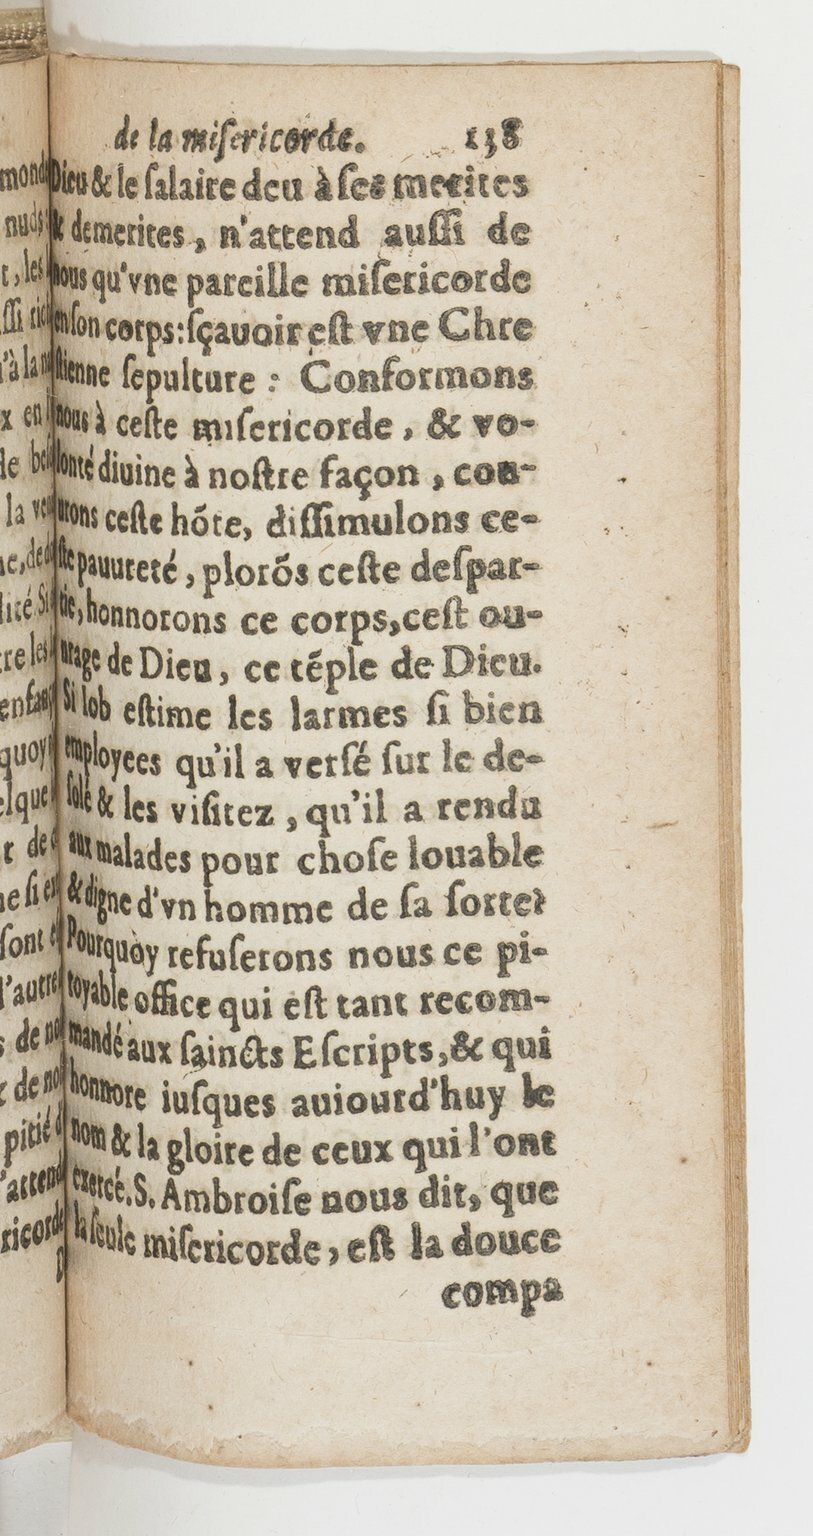 de la miſericorde. 138
Dieu & le ſalaire deu à ſes merites
& demerites, n'attend auſſi de
nous qu'vne pareille miſericorde
en ſon corps: ſçauoir eſt vne Chre
ſtienne ſepulture : Conformons
nous à ceſte miſericorde, & vo-
lonté diuine à noſtre façon, cou-
urons ceſte hôte, diſſimulons ce-
ſte pauureté, plorõs ceſte deſpar-
tie, honnorons ce corps, ceſt ou-
urage de Dieu, ce tẽple de Dieu.
Si Iob eſtime les larmes ſi bien
employees qu'il a verſé ſur le de-
ſolé & les viſitez, qu'il a rendu
aux malades pour choſe louable
& digne d'vn homme de ſa ſorte?
Pourquoy refuſerons nous ce pi-
toyable office qui eſt tant recom-
mandé aux ſaincts Eſcripts, & qui
honnore iuſques auiourd'huy le
nom & la gloire de ceux qui l'ont
exercé. S. Ambroiſe nous dit, que
la ſeule miſericorde, eſt la douce
compa